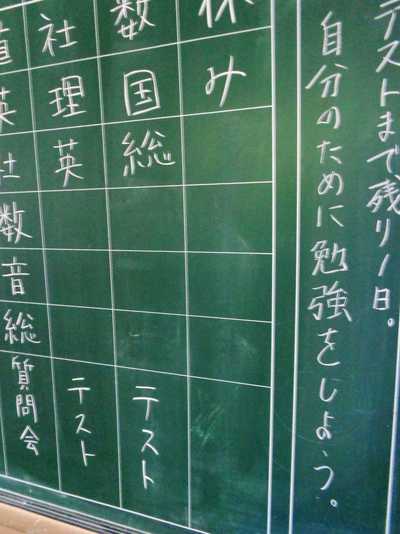 テストまで残り1日。
自分のために勉強をしよう。
休み
数国総
テスト
社理英
テスト
道英社数音総
質問会